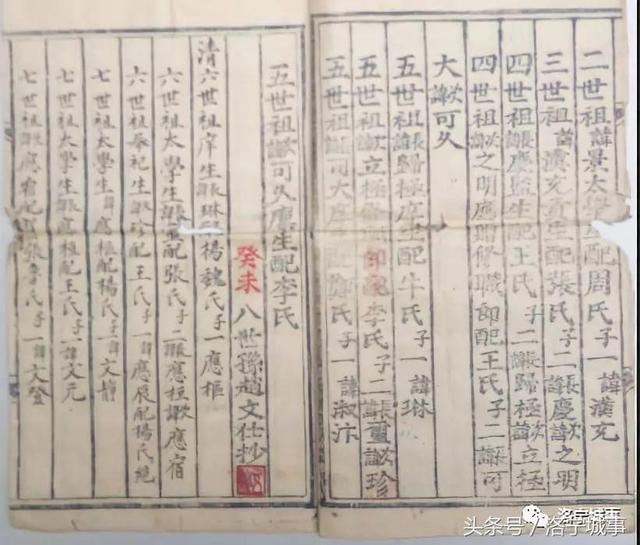 二世祖諱景太學生配周氏子一諱漢充
三世祖諱漢充貢生配張氏子二諱長慶次之明
四世祖諱長慶監生配王氏子二諱長歸極次諱立極
四世祖諱次之明應贈修職郎配王氏子二諱長可
大諱次可久
五世祖諱長歸極庠生配牛氏子一諱琳
五世祖諱次立極 李氏子二諱長璽諱次珍
五世祖諱長可大庠 氏子一諱淑汴
五世祖諱次可久廩生配李氏
癸未八世孫趙文仕抄
清六世祖庠生諱琳 楊魏氏子一應樞
六世祖太學生諱璽配張氏子二諱長應柱諱次應宿
六世祖奉祀生諱次珍配王氏子一諱應辰配楊氏絕
七世祖太學生諱應樞配楊氏子一諱文靜
七世祖太學生諱應柱配王氏子一諱文元
七世祖諱次應宿配 魯氏子一諱文登
洛宁城事
头条号/洛宁城事